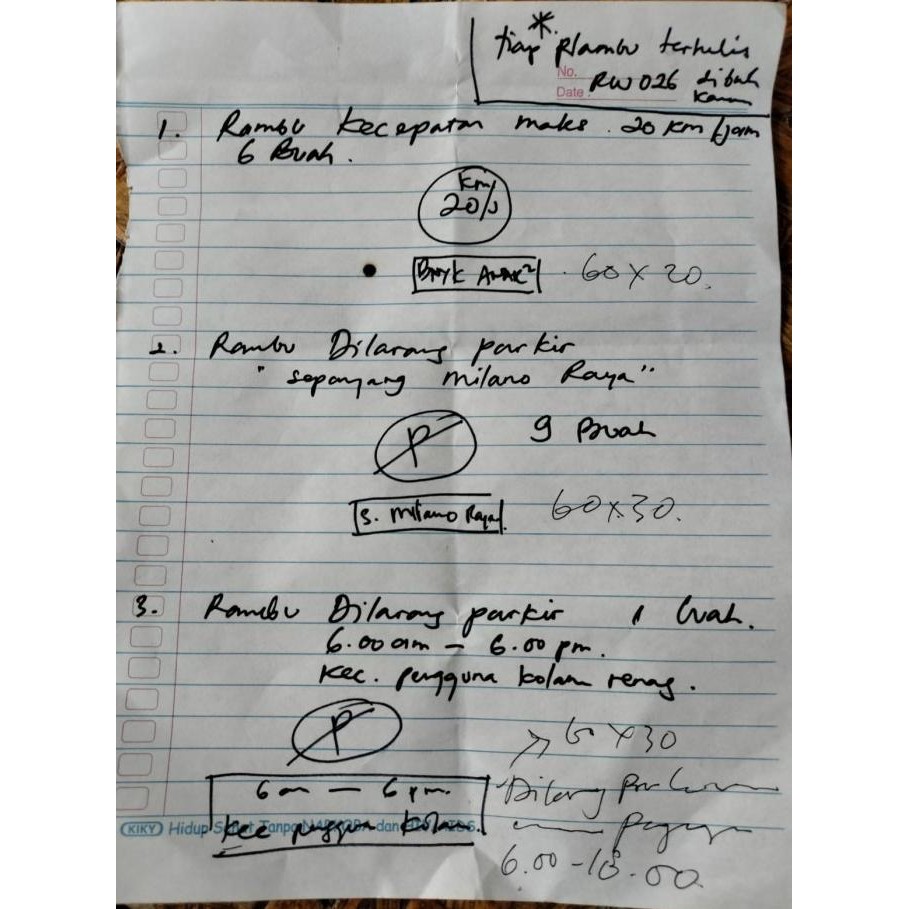 * tiap Rambu tertulis
No. RW 026 dibuah
Date kanan
1. Rambu Kecepatan maks. 20 Km/jam
6 Buah.
Km/
20/J
BNYK ANAK²
60 x 20.
2. Rambu Dilarang parkir
" sepanjang milano Raya"
P
9 Buah
S. Milano Raya
60x30.
3. Rambu Dilarang parkir 1 buah.
6.00 am - 6.00 pm.
Kec. pengguna kolam renag.
P
60 x 30
6 am - 6 pm.
Kec pengguna kolam.
Dilarang Parkir
6.00 - 18.00
KIKY Hidup Sehat Tanpa NARKOBA dan